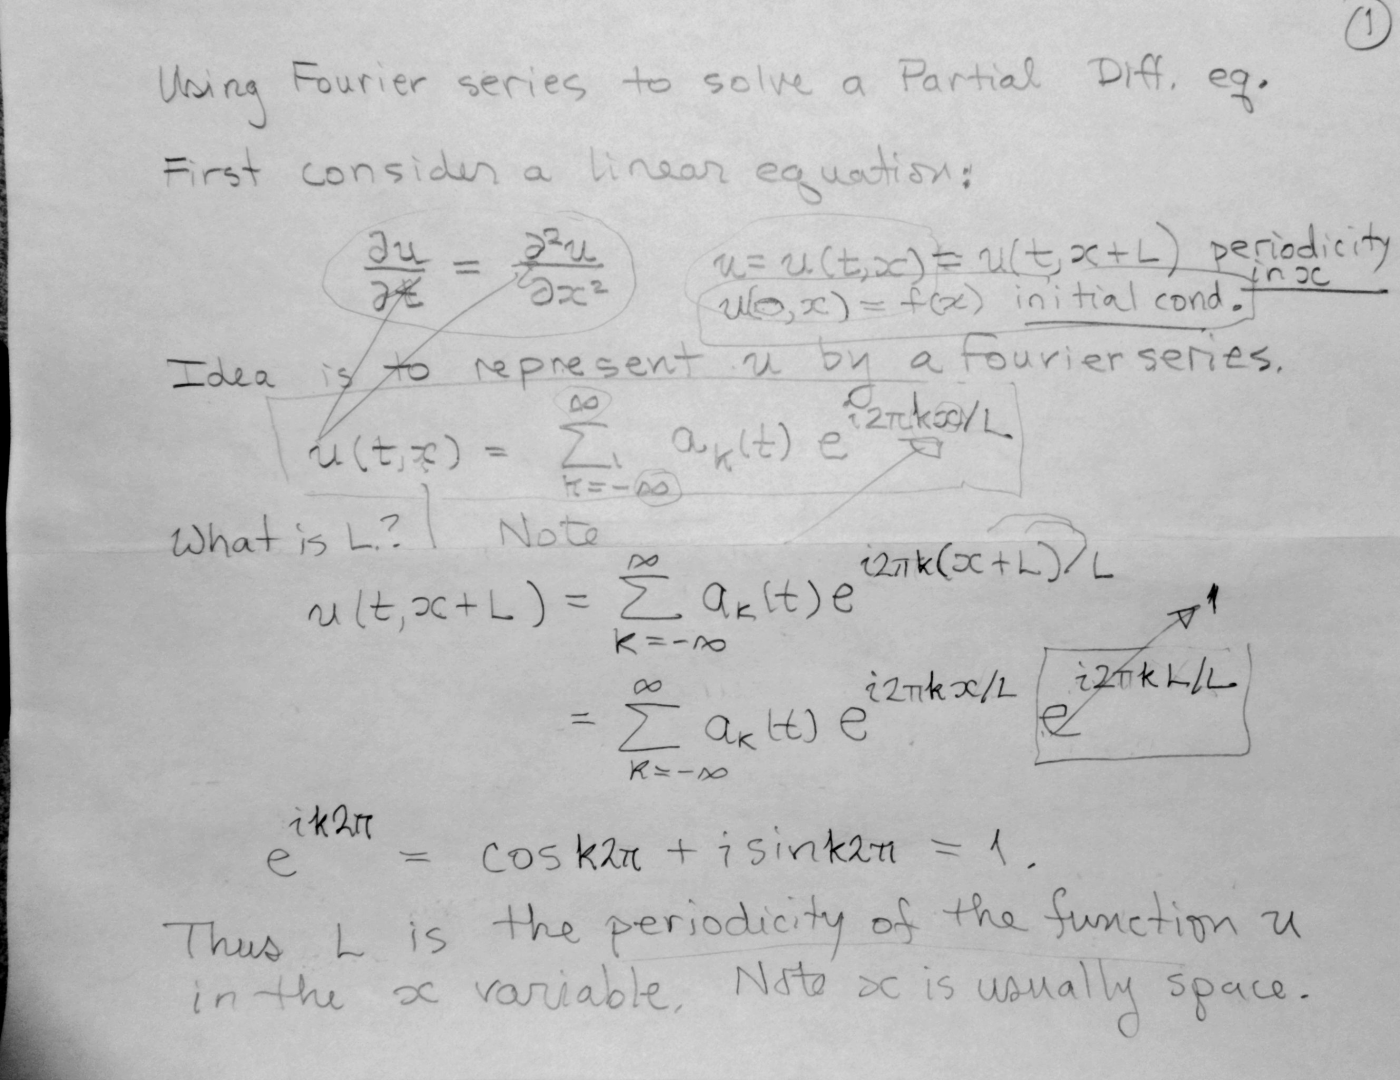 ①
Using Fourier series to solve a Partial Diff. eq.
First consider a linear equation:
∂u/∂t = ∂²u/∂x²   u = u(t,x) = u(t,x+L) periodicity in x
u(0,x) = f(x) initial cond.
Idea is to represent u by a Fourier series.
u(t,x) = ∑_{k=-∞}^{∞} a_k(t) e^{i2πkx/L}
What is L? | Note
u(t,x+L) = ∑_{k=-∞}^{∞} a_k(t) e^{i2πk(x+L)/L}
= ∑_{k=-∞}^{∞} a_k(t) e^{i2πkx/L} e^{i2πkL/L} 1
e^{ik2π} = cosk2π + i sink2π = 1.
Thus L is the periodicity of the function u
in the x variable. Note x is usually space.